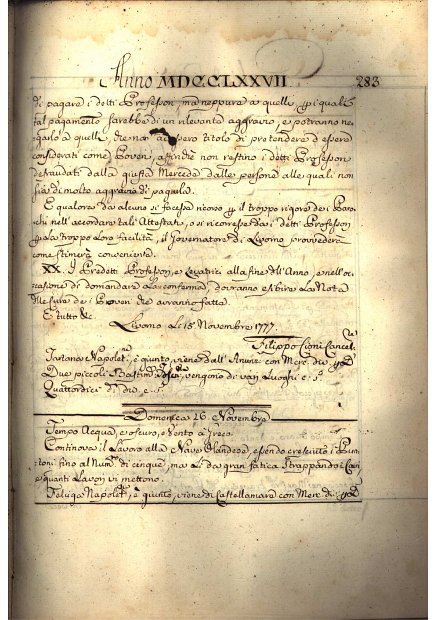 Anno MDCCLXXVII 283
di pagare i detti Professori, ma neppure a quelle pp. i quali
tal pagamento sarebbe di un rilevante aggravio, e potranno ne=
garlo a quelli, che non avessero titolo di pretendere d'essere
considerati come Poveri, affinchè non restino i detti Professori
defraudati dalla giusta Mercede dalle persone alle quali non
sia di molto aggravio di pagarlo.
E qualora da alcuno si facesse ricorso pp. il troppo rigore dei Paro=
chi nell'accordare tali Attestati, o si ricorresse da i detti Professori
pp. la troppo loro facilità, il Governatore di Livorno provvederà
come stimerà conveniente.
XX. I Predetti Professori, e Levatrici alla fine dell'Anno, e nell'oc=
casione di domandare la conferma, dovranno esibire la Nota
delle cure de i Poveri che avranno fatte.
E tutto &c.
Livorno Li 15. Novembre 1777.
Filippo Cioni Cancel.re
Tartana Napolet.a è giunta, viene dall' con Merc. di
Due piccoli Bastim.ti vengono di vari Luoghi e
Quattordici di die
Domenica 16 Novembre
Tempo Acqua, e oscuro, e Vento à Greco
Continova il Lavoro alla Nave Olandese, essendo cresciuto i Pun=
toni fino al Num.o di cinque, ma li dà gran fatica Strappando i Cavi
e quanti Lavori vi mettono.
Feluga Napolet.a è giunta, viene di Castellamare con Merc. di